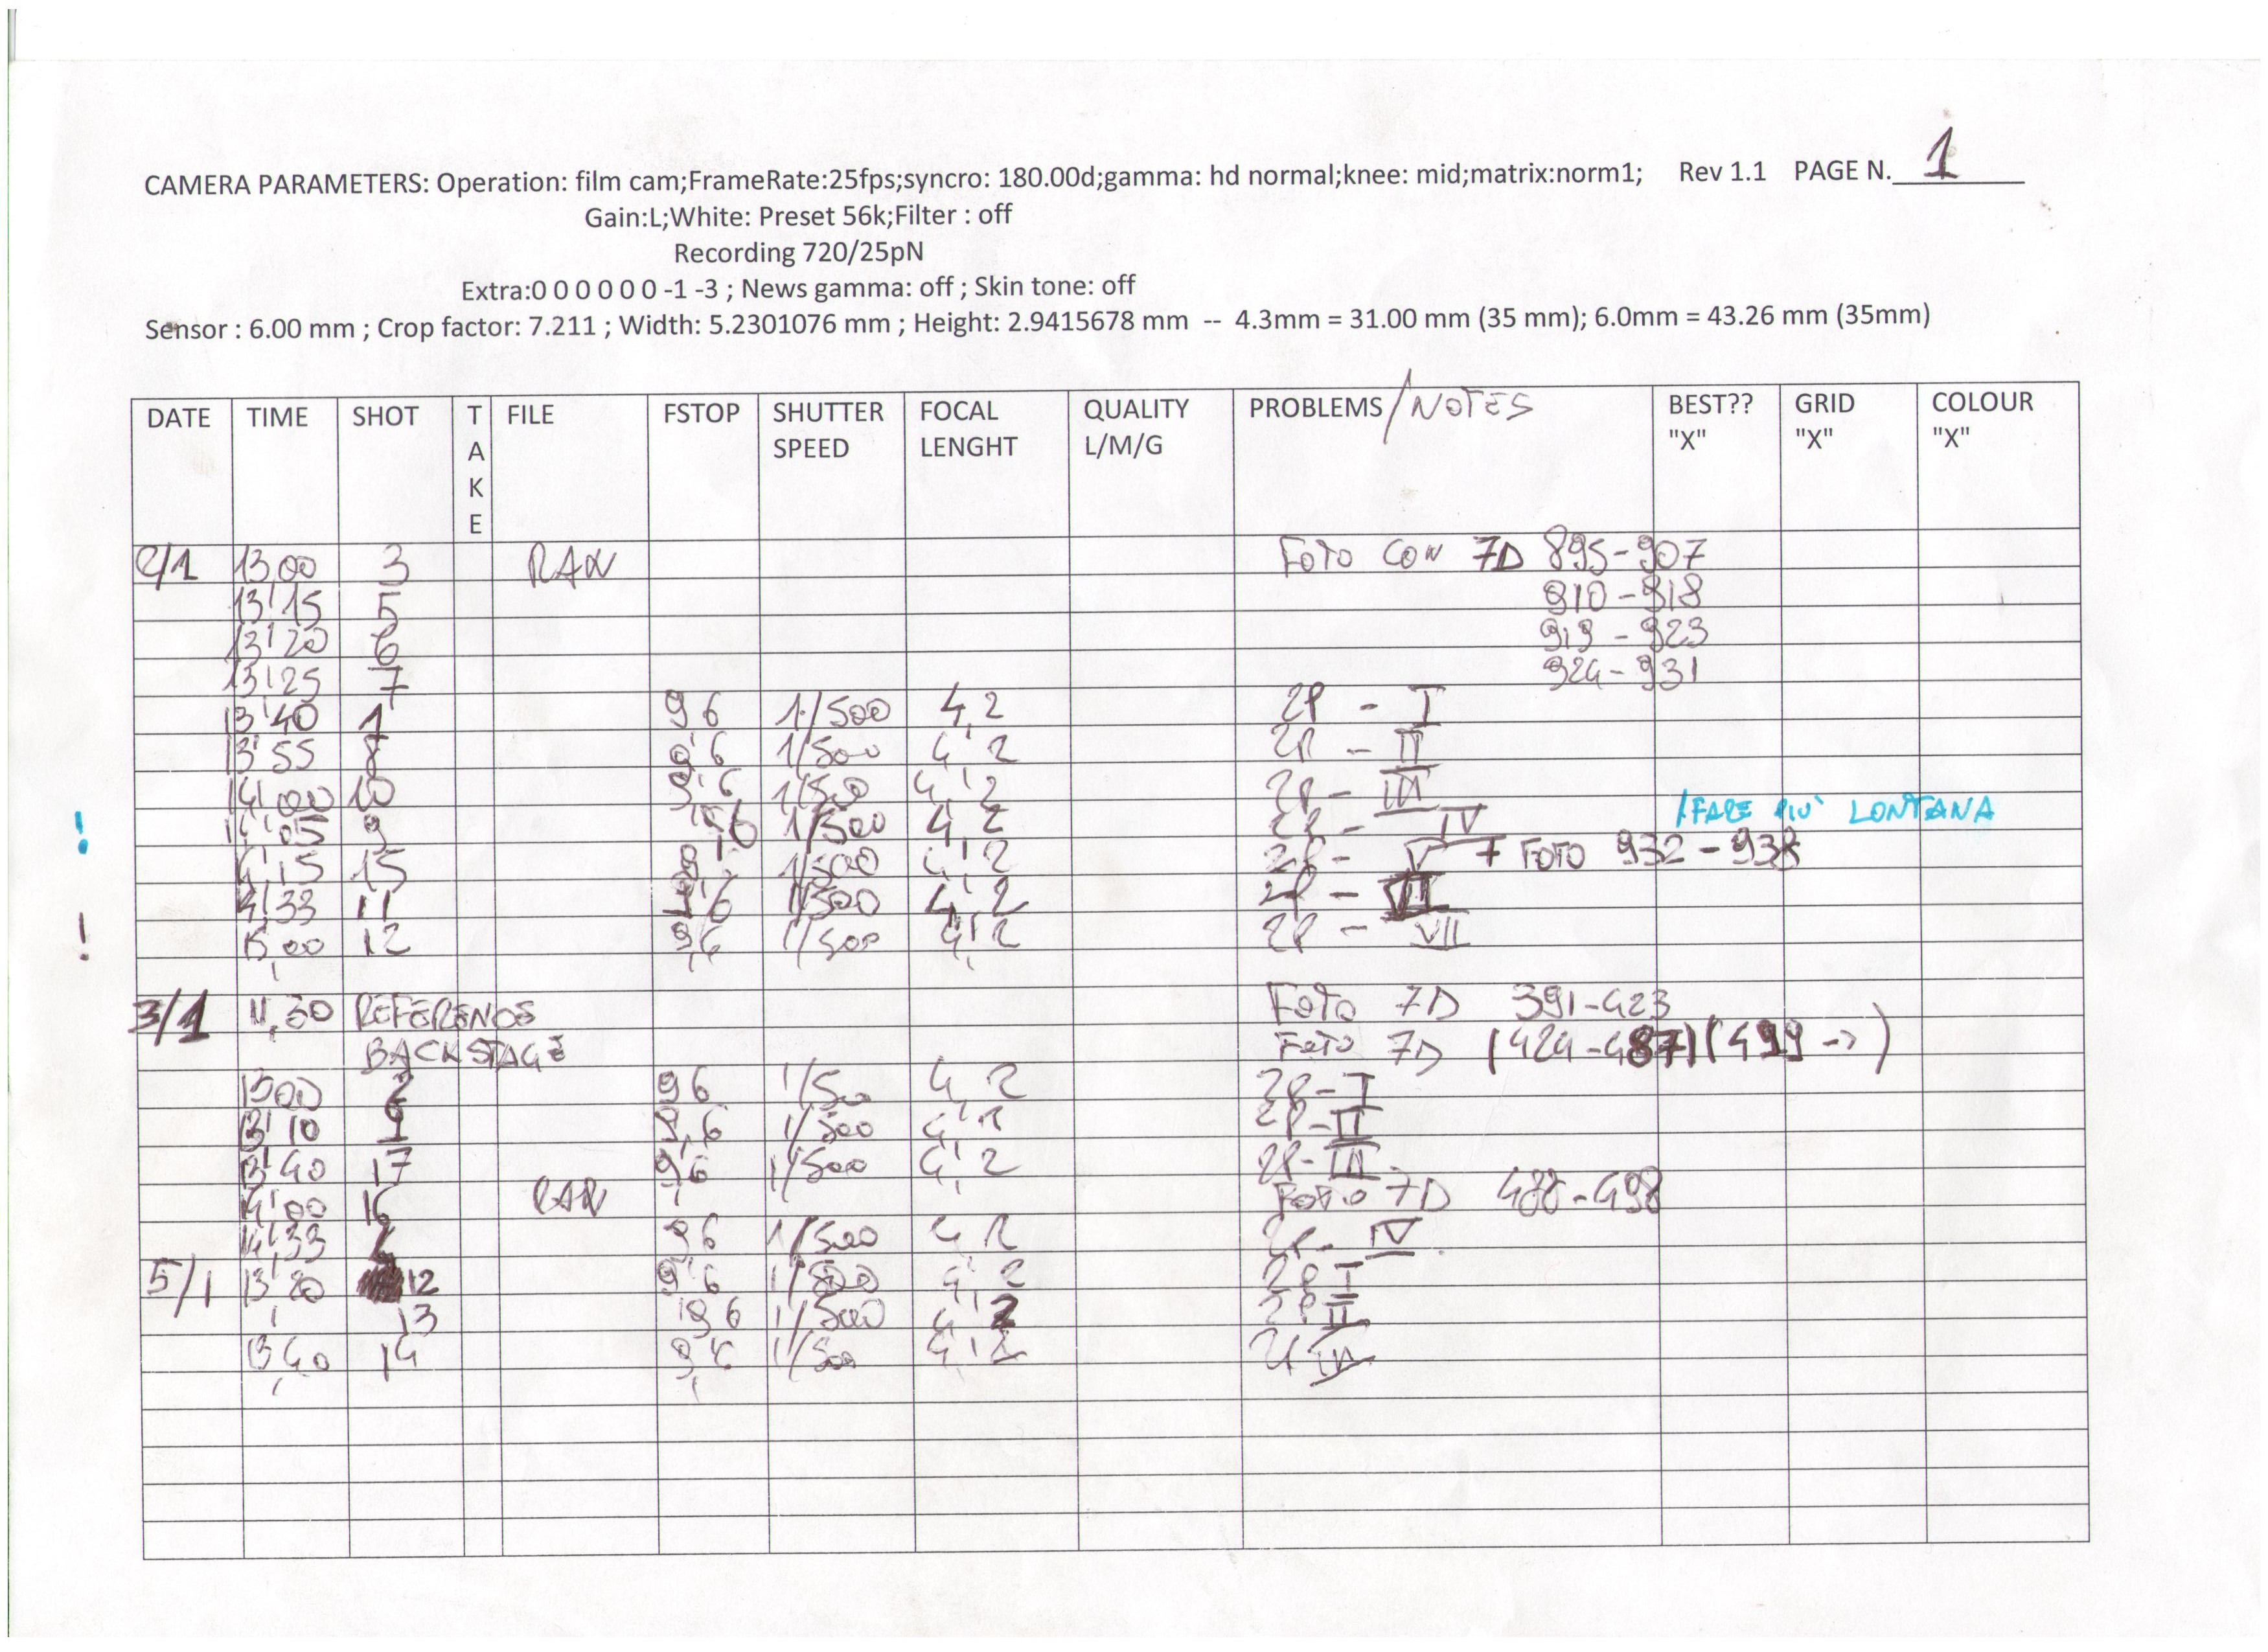 CAMERA PARAMETERS: Operation: film cam;FrameRate:25fps;syncro: 180.00d;gamma: hd normal;knee: mid;matrix:norm1; Rev 1.1 PAGE N. 1
Gain:L;White: Preset 56k;Filter : off
Recording 720/25pN
Extra:0 0 0 0 0 0 -1 -3 ; News gamma: off ; Skin tone: off
Sensor : 6.00 mm ; Crop factor: 7.211 ; Width: 5.2301076 mm ; Height: 2.9415678 mm -- 4.3mm = 31.00 mm (35 mm); 6.0mm = 43.26 mm (35mm)
DATE TIME SHOT TAKE FILE FSTOP SHUTTER SPEED FOCAL LENGHT QUALITY L/M/G PROBLEMS /NOTES BEST?? "X" GRID "X" COLOUR "X"
2/1 13,00 3 RAW FOTO CON 7D 895-907
13,15 5 910-918
13,20 6 919-923
13,25 7 924-931
13,40 1 9,6 1/500 4,2 2P - I
13,55 8 9,6 1/500 4,2 2P - II
14,00 10 9,6 1/500 4,2 2P - III
! 14,05 9 1/500 4,2 2P - IV /FARE PIÙ LONTANA
14,15 15 9,6 1/500 4,2 2P - V 7 FOTO 932-938
14,33 11 9,6 1/500 4,2 2P - VI
! 15,00 12 9,6 1/500 4,2 2P - VII
3/1 11,30 REFERENCS FOTO 7D 391-423
BACKSTAGE FOTO 7D (424-487)(499 ->)
13,00 2 9,6 1/500 4,2 2P - I
13,10 9,6 1/500 4,2 2P - II
13,40 17 9,6 1/500 4,2 2P - III
14,00 16 RAW FOTO 7D 488-498
14,33 9,6 1/500 4,2 2P - IV
5/1 13,20 12 9,6 1/500 4,2 2P I
13 9,6 1/500 4,2 2P II
13,40 14 9,6 1/500 4,2 2P III